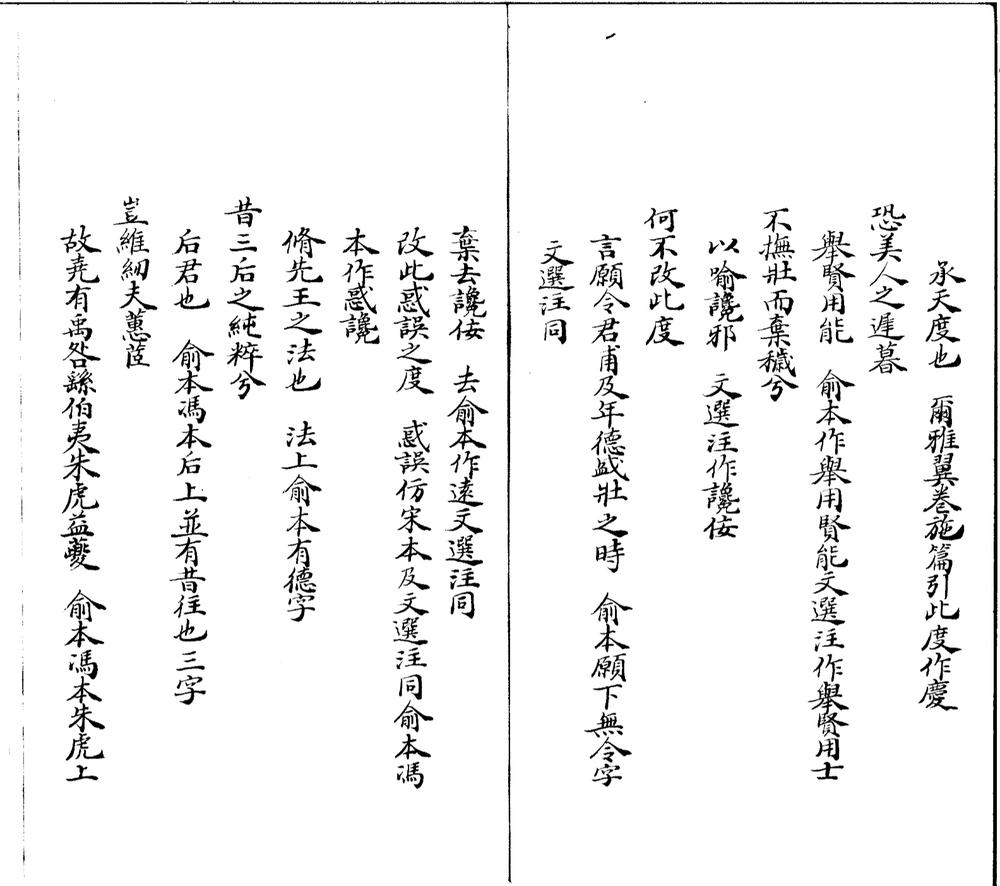 承天度也 爾雅翼卷施篇引此度作慶
恐美人之遲暮
舉賢用能 俞本作舉用賢能文選注作舉賢用士
不撫壯而棄穢兮
以喻讒邪 文選注作讒佞
何不改此度
言願令君甫及年德盛壯之時 俞本願下無令字
文選注同
棄去讒佞 去俞本作遠文選注同
改此惑誤之度 惑誤仿宋本及文選注同俞本馮
本作惑讒
脩先王之法也 法上俞本有德字
昔三后之純粹兮
后君也 俞本馮本后上並有昔往也三字
豈維紉夫蕙茝
故堯有禹咎繇伯夷朱虎益夔 俞本馮本朱虎上